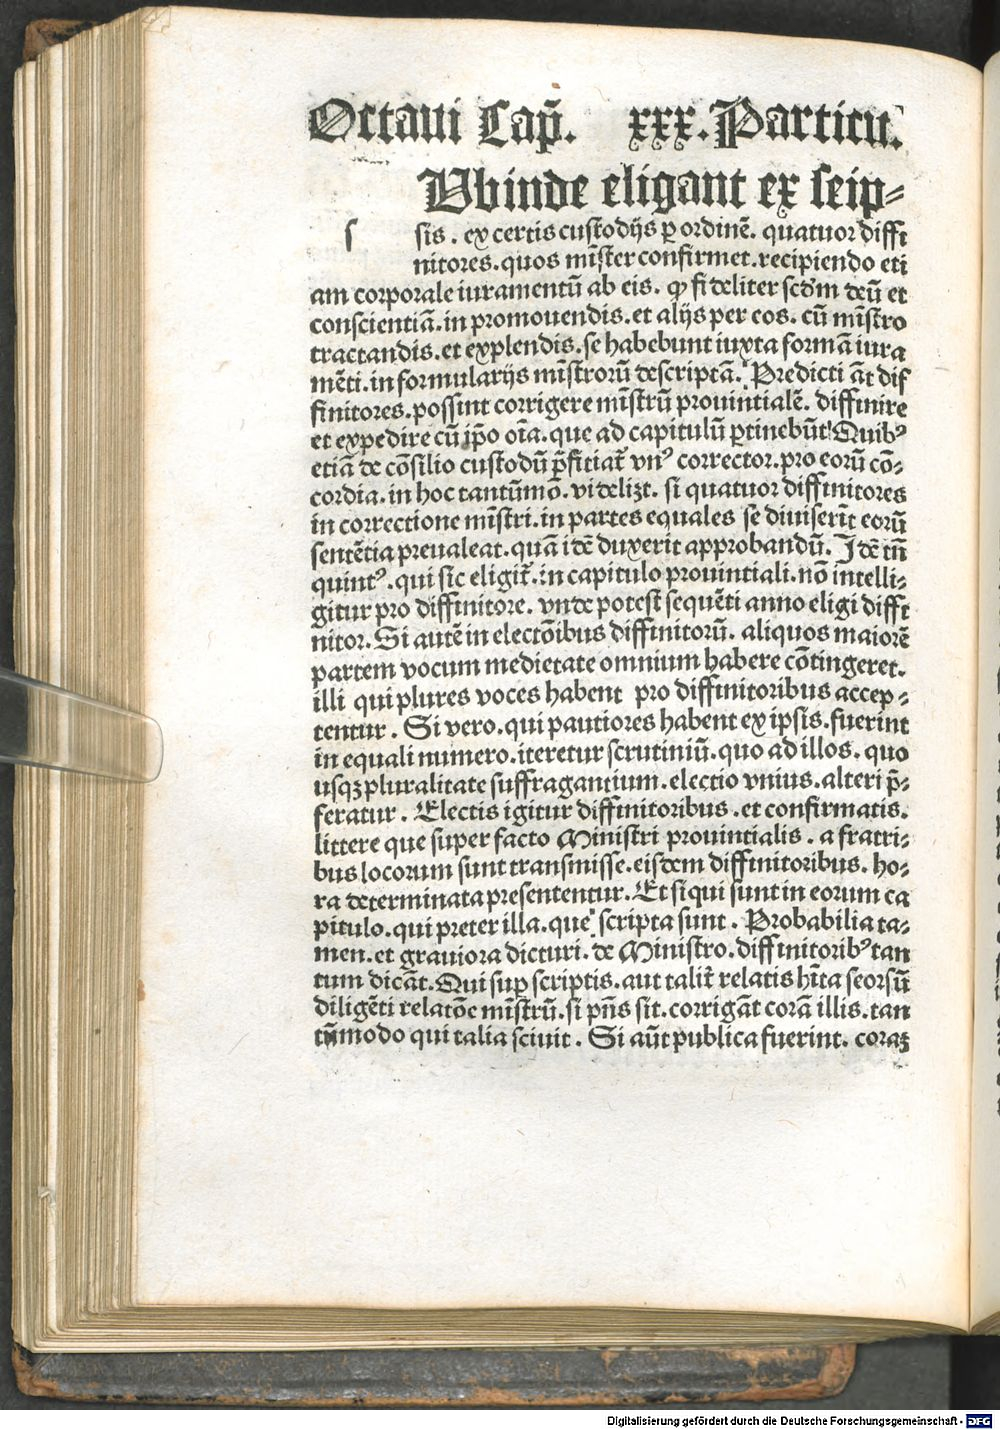 Octaui Cap̄. xxx. Particu.
Ubinde eligant ex seip⸗
ſ sis . ex certis custodijs ꝑ ordinē. quatuor diffi
nitores. quos mīster confirmet. recipiendo eti
am corporale iuramentū ab eis. ꝙ fideliter scd̄m deū et
conscientiā. in promouendis. et alijs per eos. cū mīstro
tractandis. et explendis. se habebunt iuxta formā iura
mēti. in formularijs mīstrorū descriptā. Predicti āt dif
finitores. possint corrigere mīstrū prouintialē. diffinire
et expedire cū ip̄o oīa. que ad capitulū ꝑtinebūt. Quibꝰ
etiā de cōsilio custodū p̄fitiat᷑ vnꝰ corrector. pro eorū cō⸗
cordia. in hoc tantūmō. videlizt. si quatuor diffinitores
in correctione mīstri. in partes equales se diuiserīt eorū
sentētia preualeat. quā idē duxerit approbandū. Idē tn̄
quintꝰ. qui sic eligit᷑. in capitulo prouintiali. nō intelli⸗
gitur pro diffinitore. vnde potest sequēti anno eligi diffi
nitor. Si autē in electōibus diffinitorū. aliquos maiorē
partem vocum medietate omnium habere cōtingeret.
illi qui plures voces habent pro diffinitoribus accep⸗
tentur . Si vero. qui pautiores habent ex ipsis. fuerint
in equali numero. iteretur scrutiniū. quo ad illos. quo
usqꝫ pluralitate suffragantium. electio vnius. alteri p̄⸗
feratur . Electis igitur diffinitoribus. et confirmatis.
littere que super facto Ministri prouintialis . a fratri⸗
bus locorum sunt transmisse. eisdem diffinitoribus. ho⸗
ra determinata presententur. Et si qui sunt in eorum ca
pitulo. qui preter illa. que scripta sunt . Probabilia ta⸗
men. et grauiora dicturi. de Ministro. diffinitoribꝰ tan
tum dicāt. Qui suꝑ scriptis. aut talit᷑ relatis hīta seorsū
diligēti relatōe mīstrū. si pn̄s sit. corrigāt corā illis. tan
tūmodo qui talia sciuit . Si aūt publica fuerint. coraꝫ
Digitalisierung gefördert durch die Deutsche Forschungsgemeinschaft - DFG